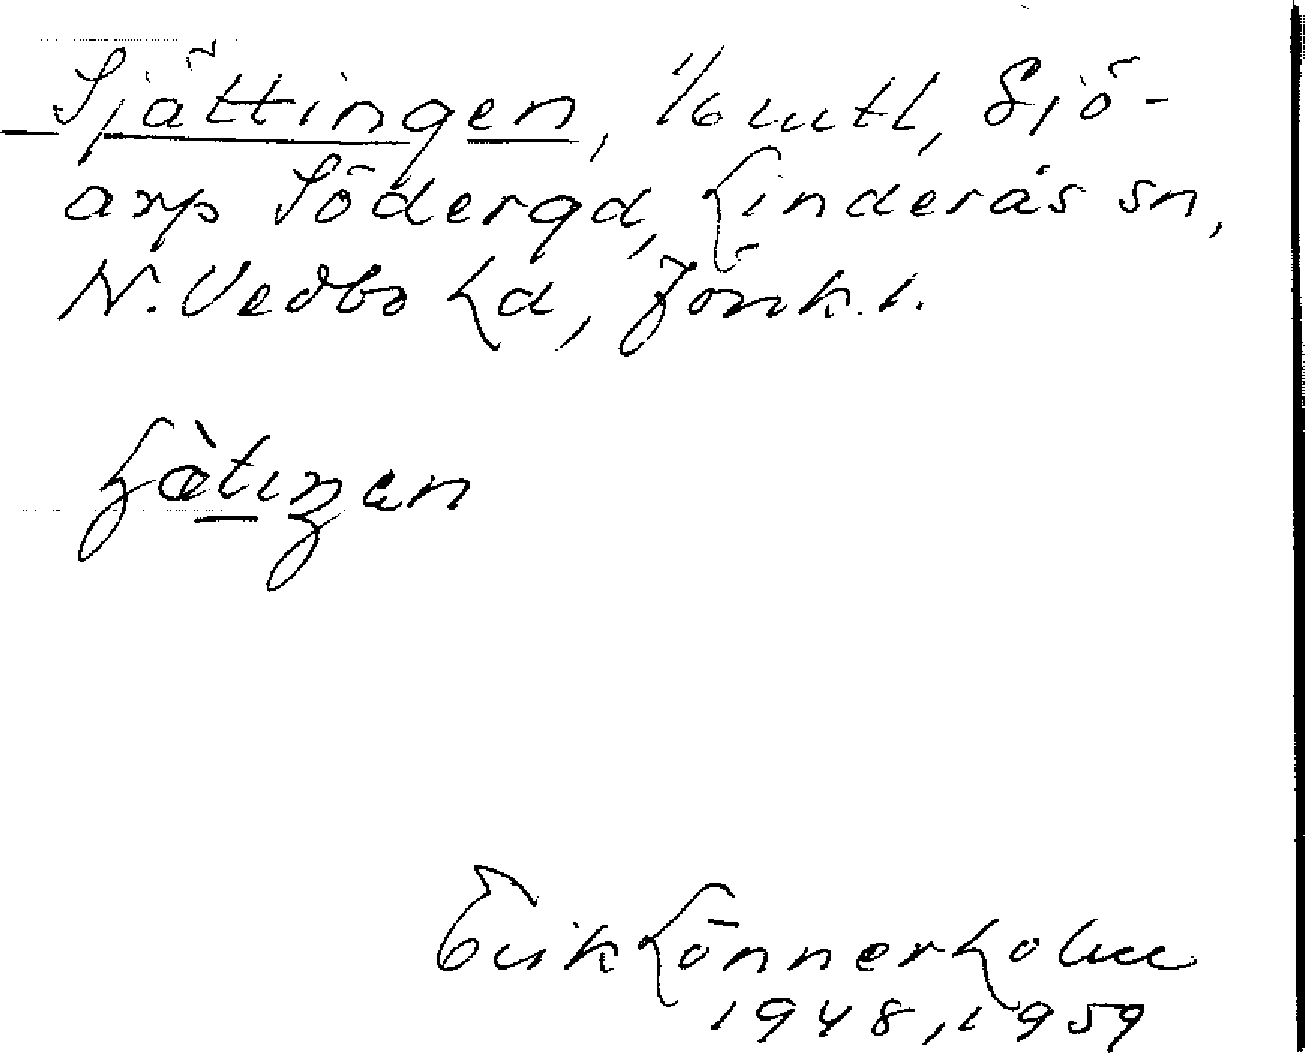 Sjättingen, 1/6 mtl, Sjö-
arp Södergd, Linderås sn,
N. Vedbo hd, Jönk. l.
Erik Lönnerholm
1948, 1959